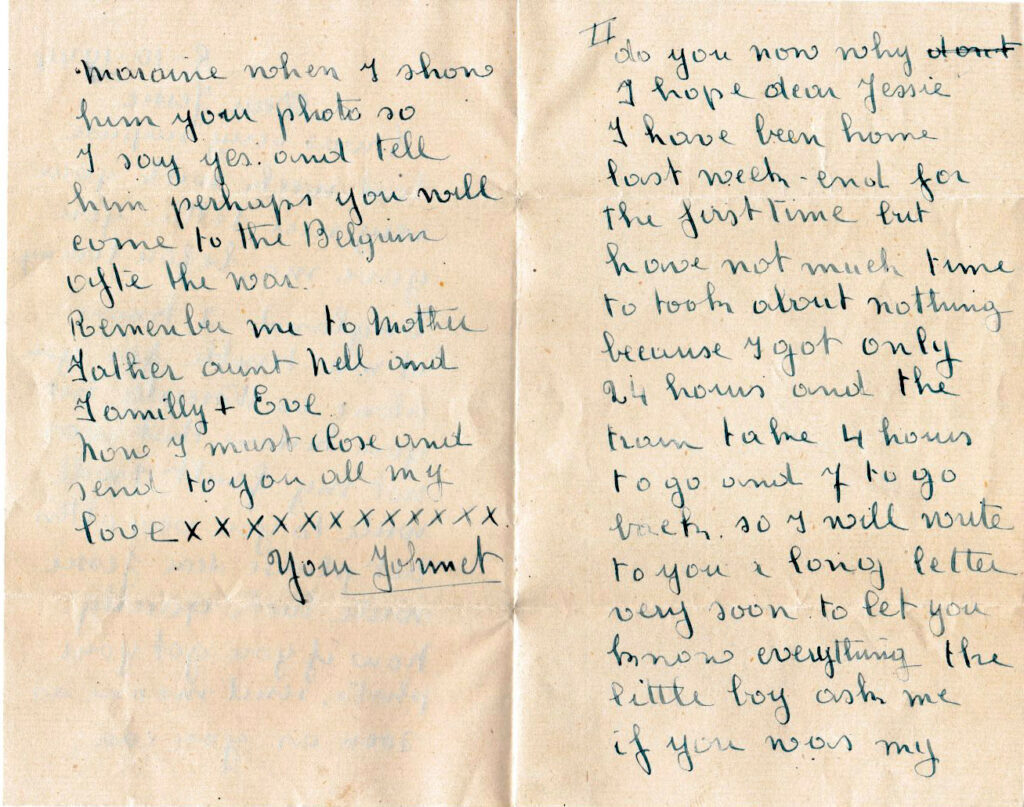 II
do you now why dont
I hope dear Jessie
I have been home
last week-end for
the first time but
have not much time
to took about nothing
because I got only
24 hours and the
train take 4 hours
to go and 7 to go
back. so I will write
to you a long letter
very soon to let you
know everything the
little boy ask me
if you was my
Maraine when I show
him your photo so
I say yes. and tell
him perhaps you will
come to the Belgium
afte the war.
Remember me to Mother
Father aunt Nell and
Familly + Eve.
Now I must close and
send to you all my
love x x x x x x x x x x x x.
Your